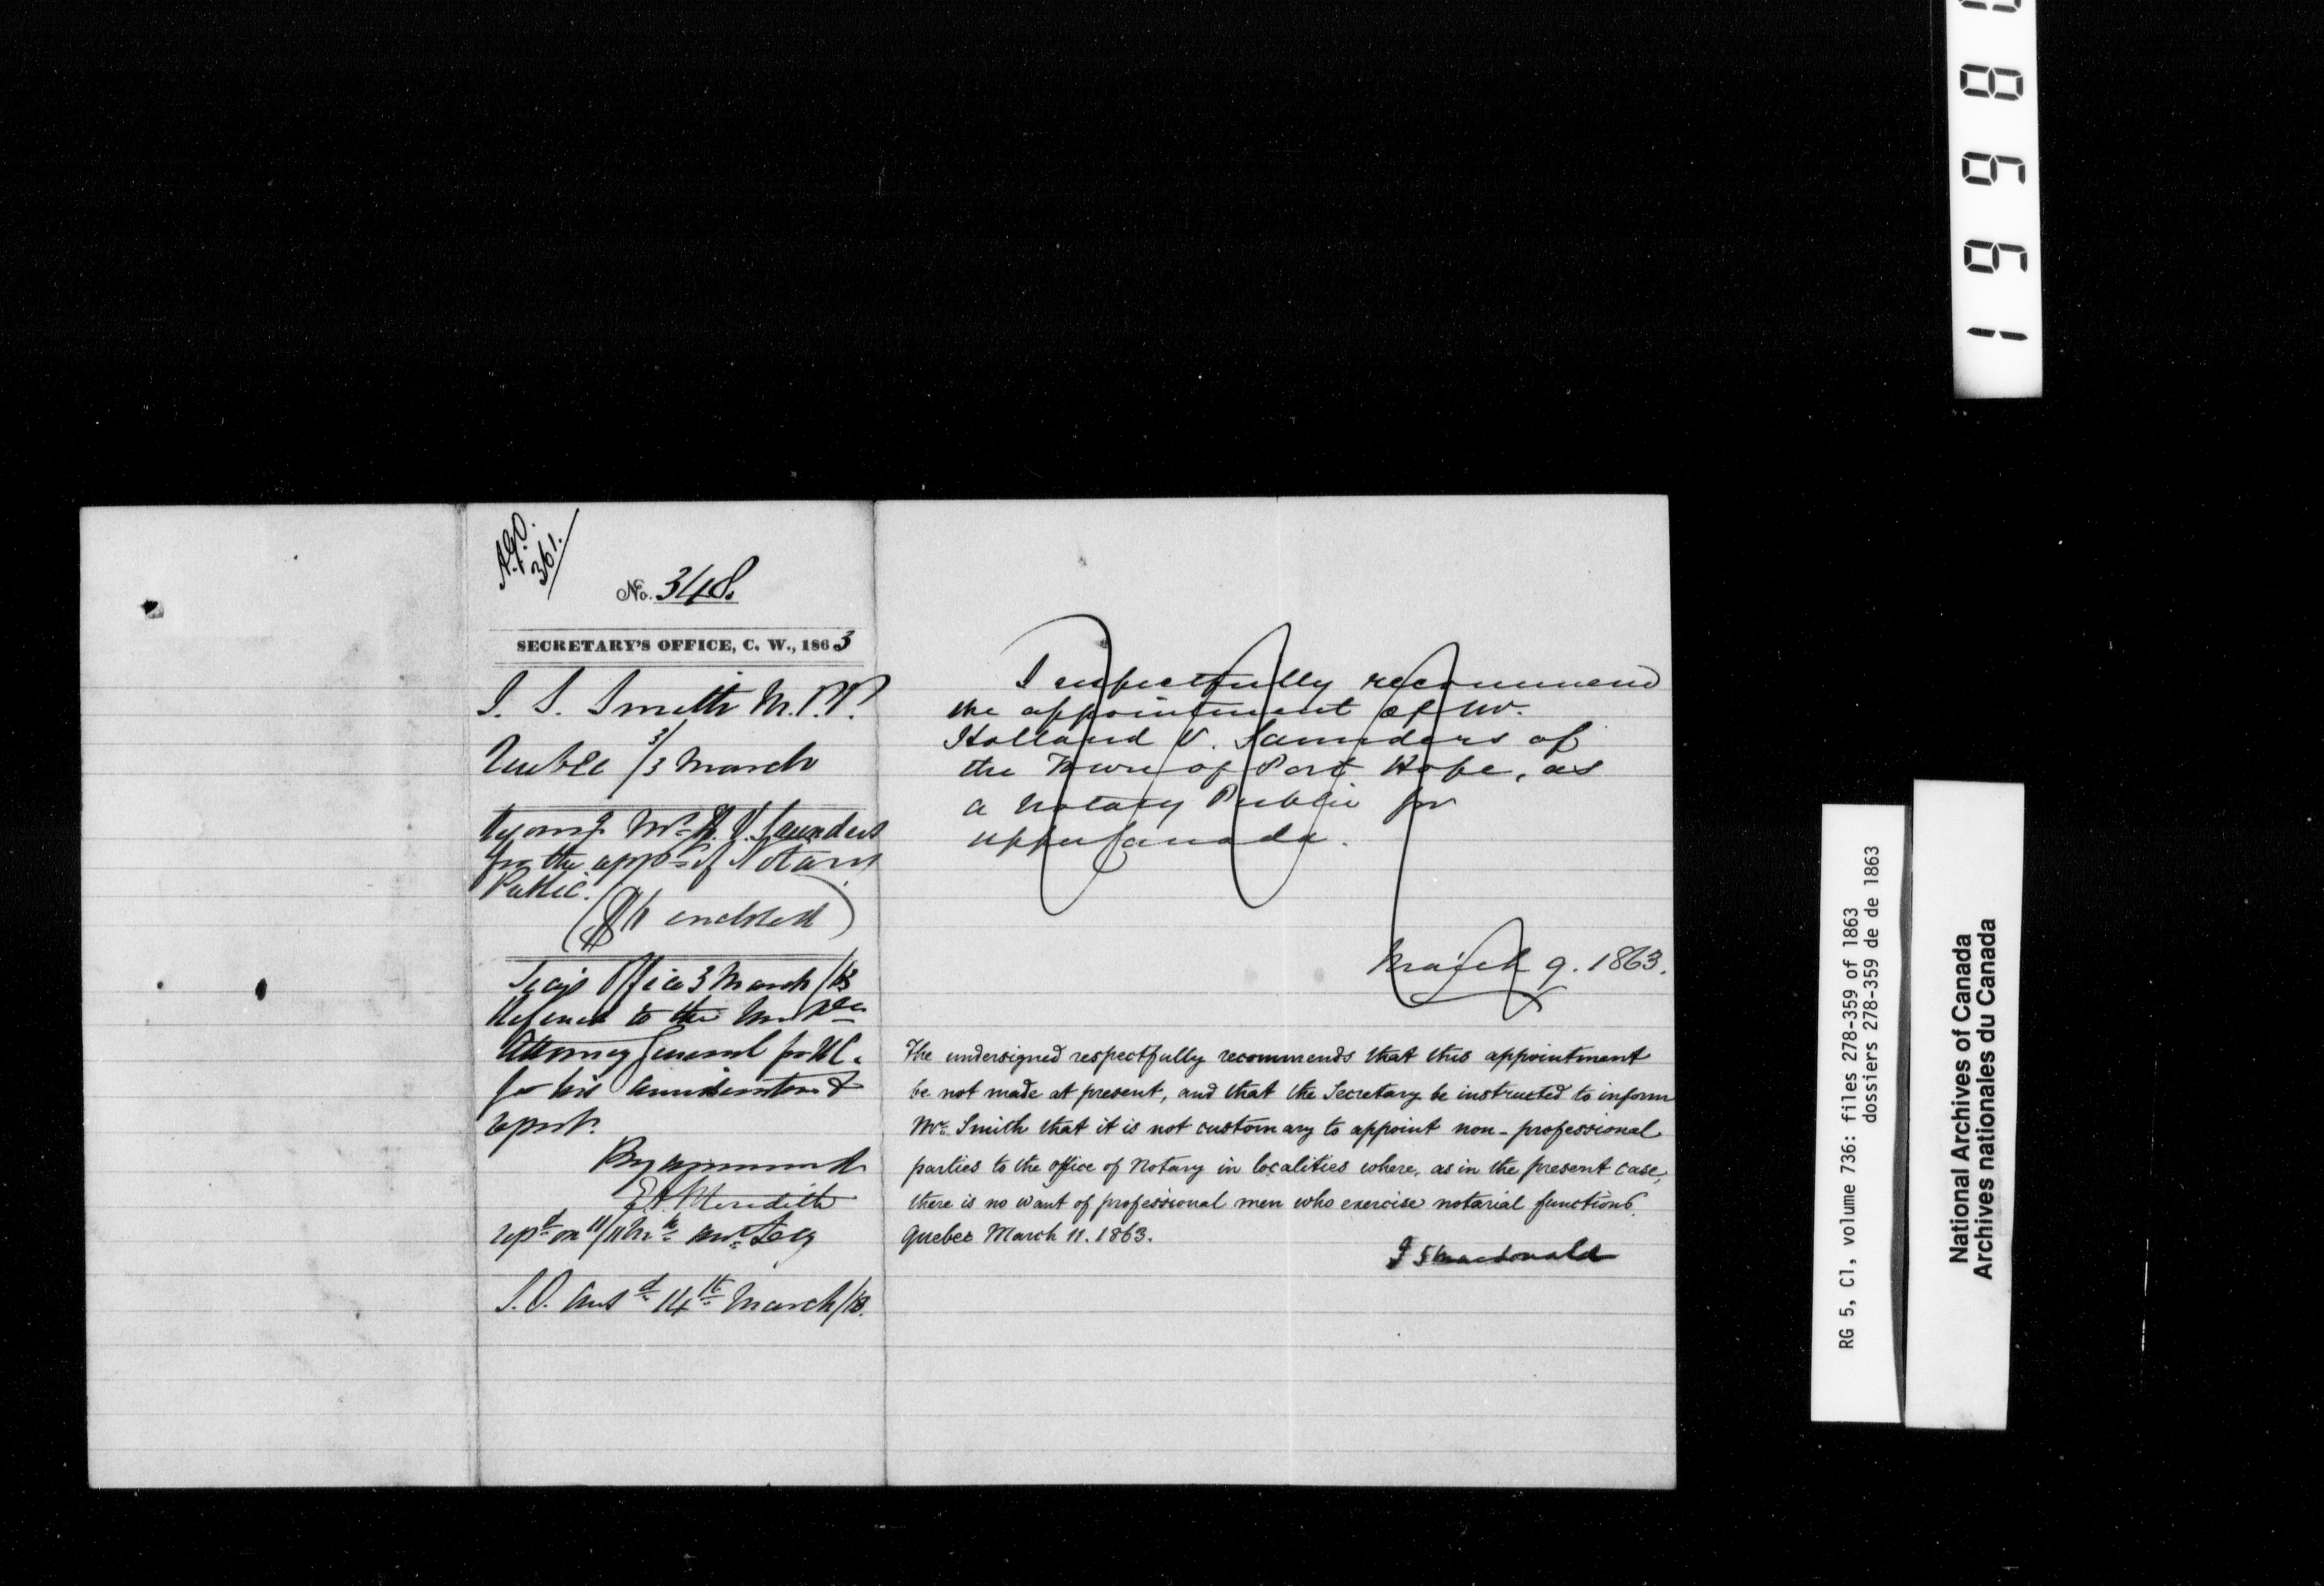 A.G.O.
361.
No. 348.
SECRETARY'S OFFICE, C. W., 1863
J. S. Smith M.P.P.
Quebec 3/3 March
Mr. H. V. Saunders
for the appt of Notary
Public.
($1 enclosed)
Sec's Office 3 March /63
Referred to the Hon. the
Attorney General for U.C.
for his consideration &
report.
By command
E A Meredith
Repd on 11/11
S.O. Ansd 14th March/63.
I respectfully recommend
the appointment of Mr.
Holland V. Saunders of
the Town of Port Hope, as
a Notary Public for
Upper Canada.
March 9. 1863.
The undersigned respectfully recommends that this appointment
be not made at present, and that the Secretary be instructed to inform
Mr. Smith that it is not customary to appoint non-professional
parties to the office of Notary in localities where, as in the present case,
there is no want of professional men who exercise notarial functions.
Quebec March 11. 1863.
J S Macdonald
RG 5, C1, volume 736: files 278-359 of 1863
dossiers 278-359 de de 1863
National Archives of Canada
Archives nationales du Canada